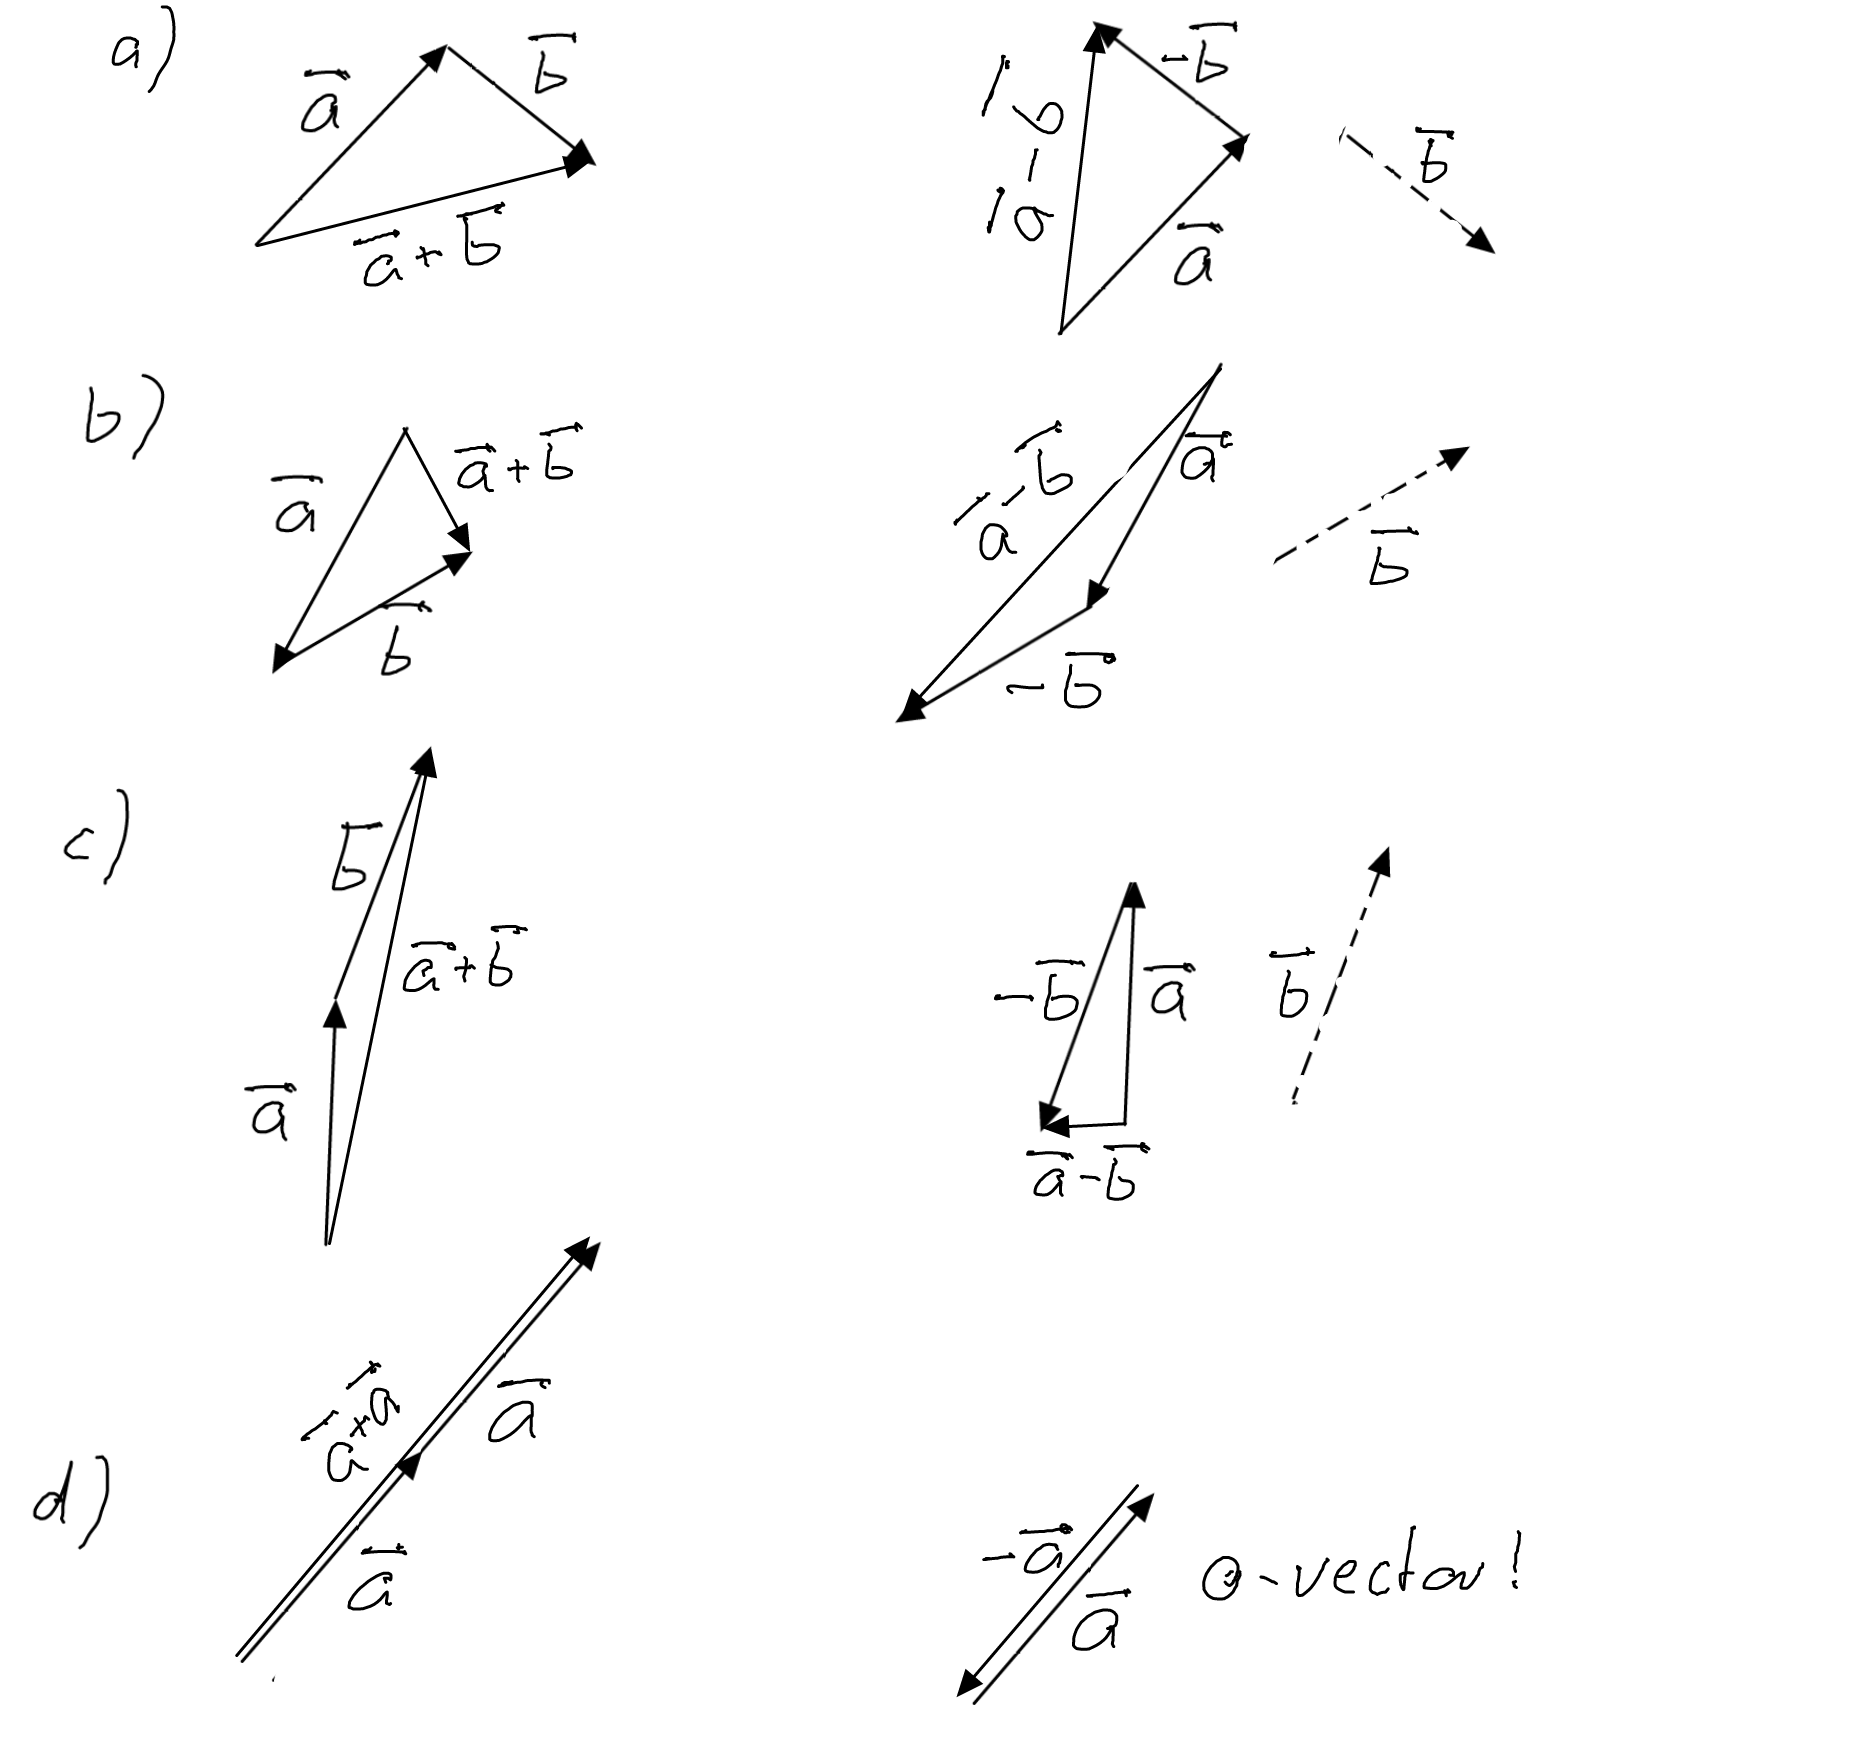 a)
a⃗
b⃗
a⃗ + b⃗
a⃗ - b⃗
-b⃗
a⃗
b⃗
b)
a⃗
a⃗ + b⃗
b⃗
a⃗ - b⃗
a⃗
-b⃗
b⃗
c)
b⃗
a⃗ + b⃗
a⃗
-b⃗
a⃗
b⃗
a⃗ - b⃗
d)
a⃗ + a⃗
a⃗
a⃗
-a⃗
a⃗
0-vector!